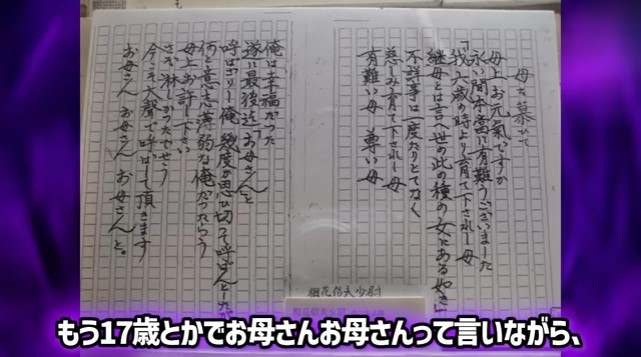 母を慕いて
母上お元気ですか
永い間本当に有難うございました
我六歳の時より育て下されし母
継母とは言へ世の此の種の女にある如き
不祥事は一度たりとてなく
慈しみ育て下されし母
有難い母 尊い母
俺は幸福だった
遂に最後迄「お母さん」と
呼ばざりし俺
幾度か思い切って呼ばんとしたが
何と意志薄弱な俺だったろう
母上お許し下さい
さぞ淋しかったでせう
今こそ大声で呼ばして頂きます
お母さん お母さん お母さんと。
相花信夫少尉
もう17歳とかでお母さんお母さんって言いながら、